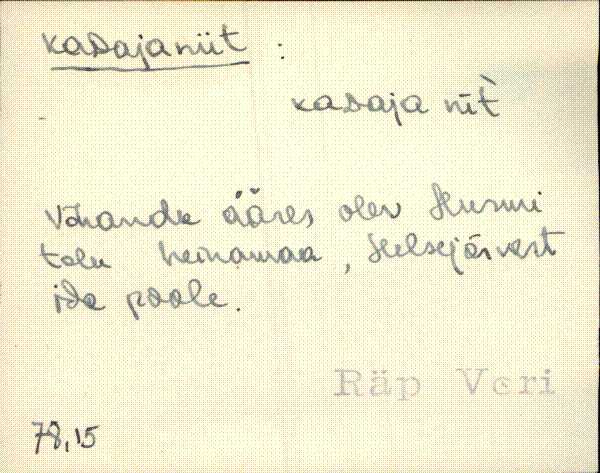 kasajaniit :
kasaja nīt̀
Võhandu ääres olev Husmi
talu heinamaa, Helsejärvest
ida poole.
Räp Veri
78,15